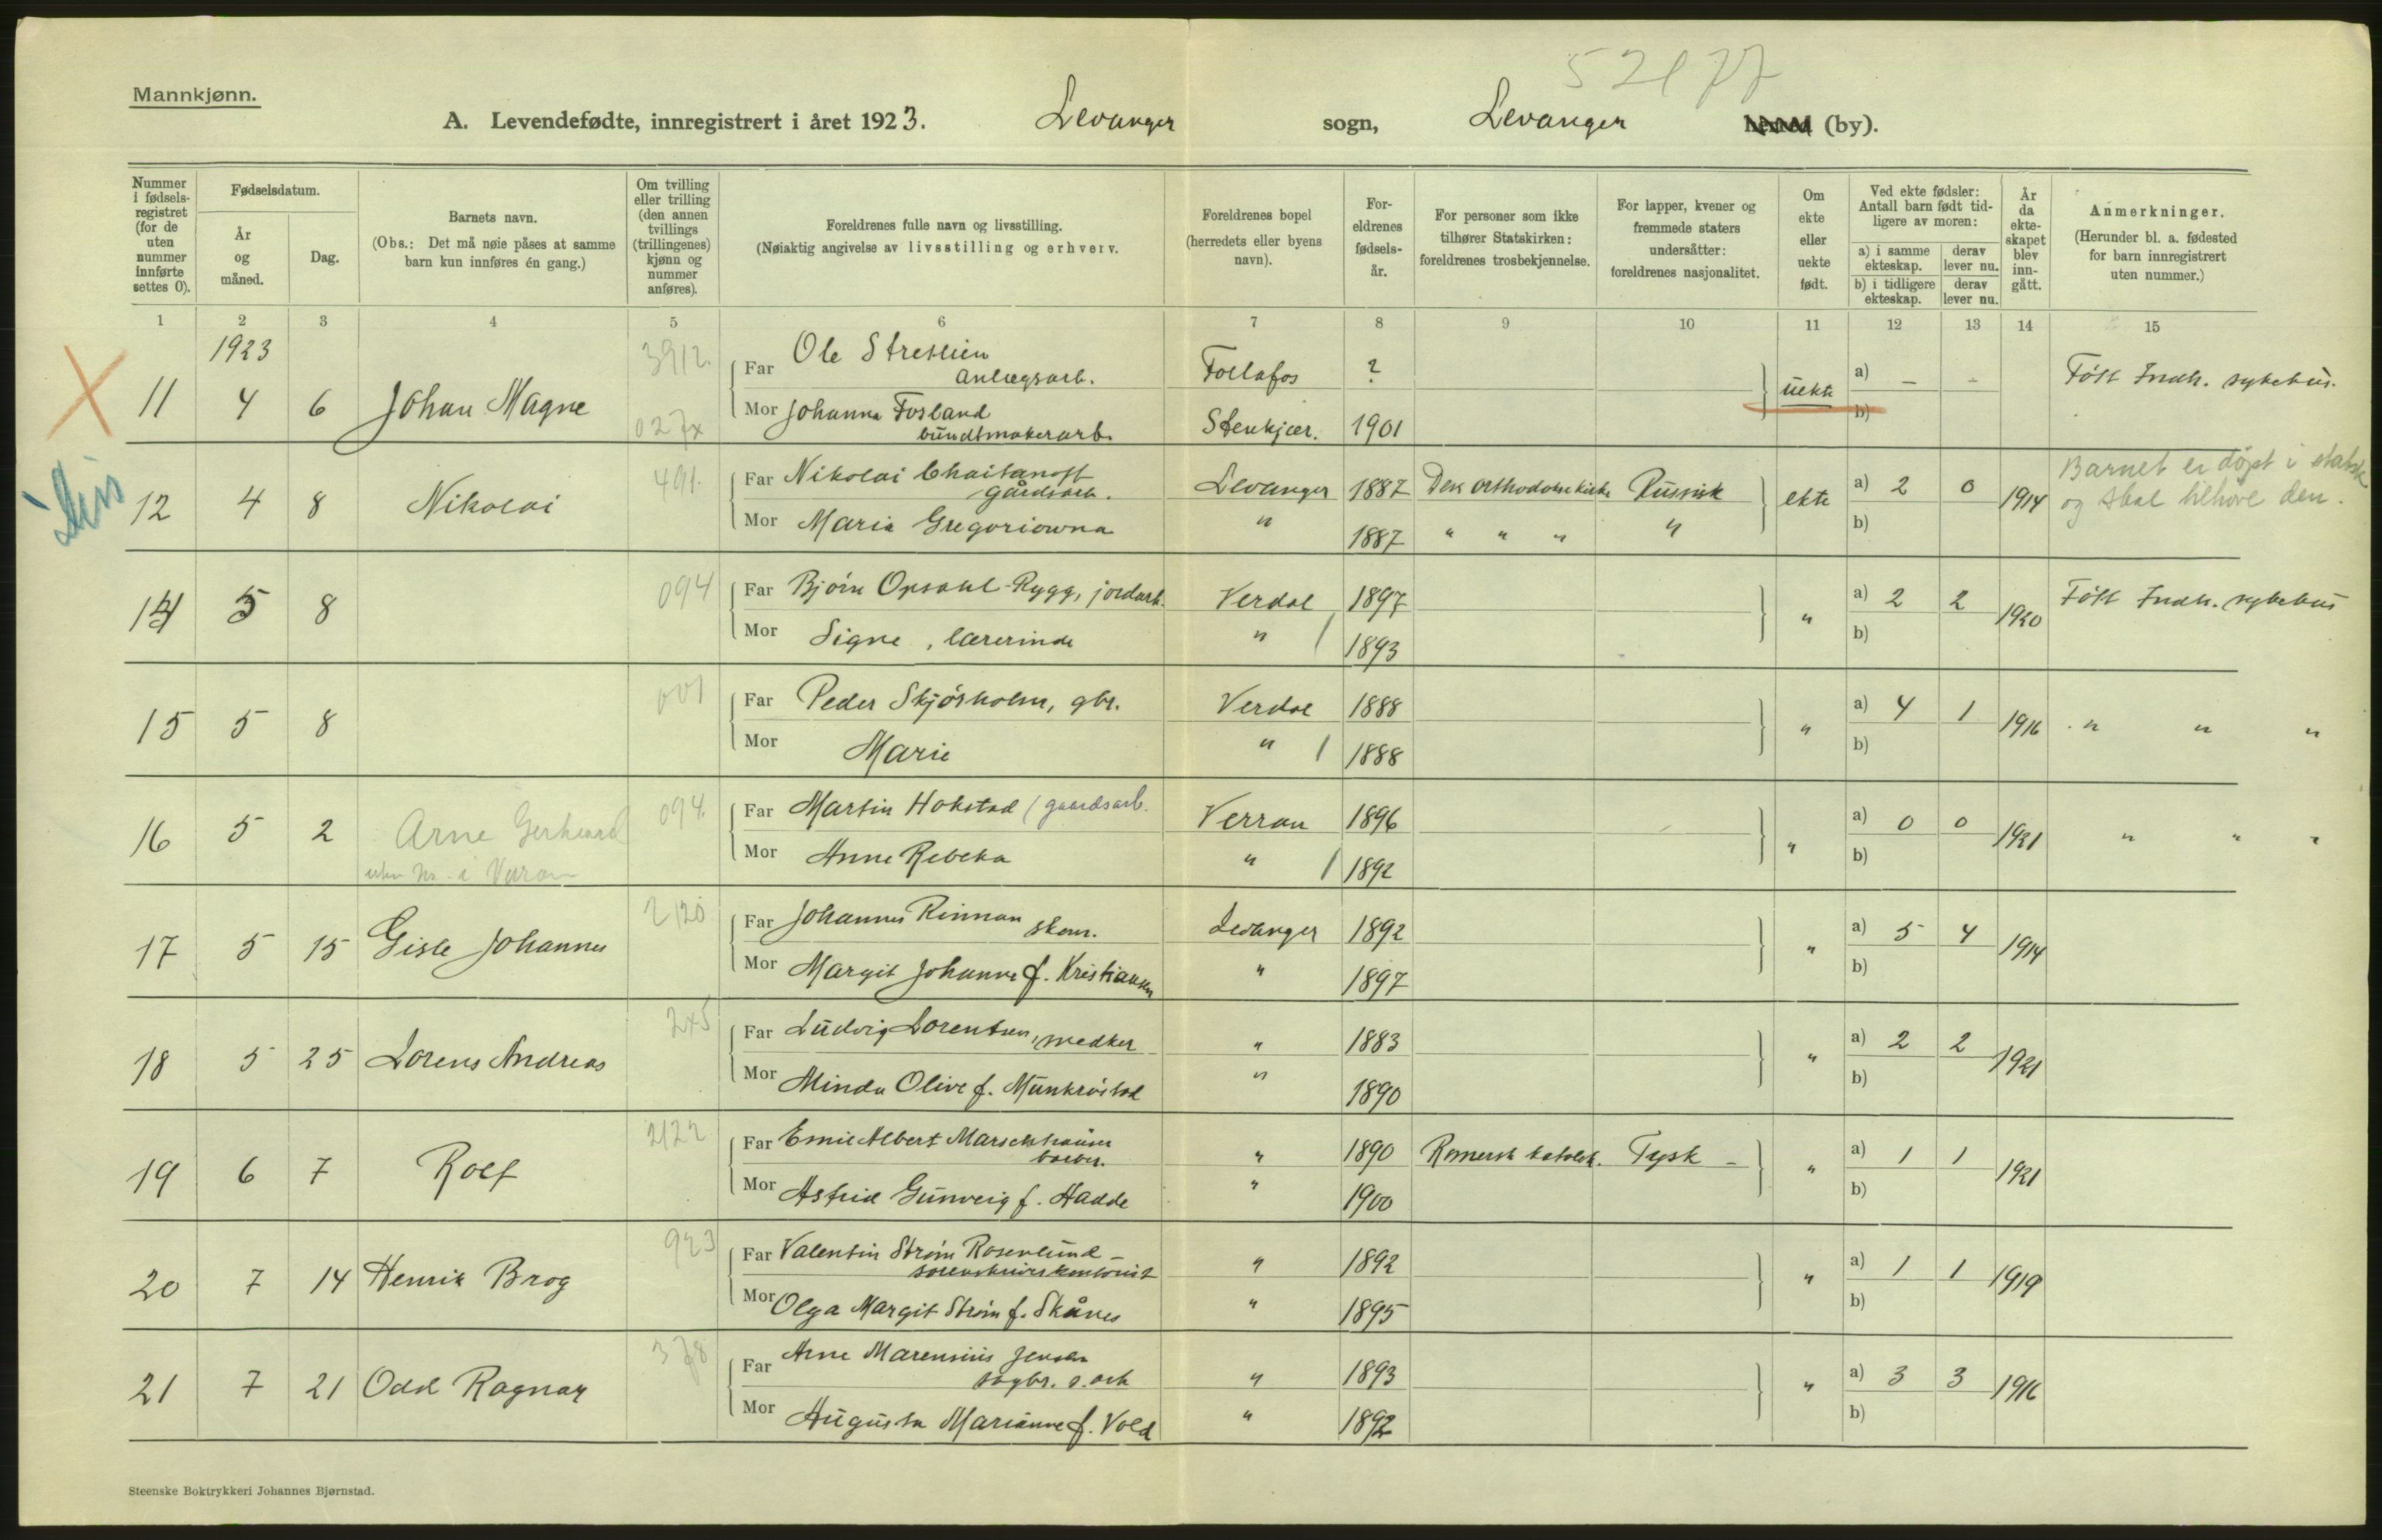 52177
Mannkjønn.
A. Levendefødte, innregistrert i året 1923. Levanger sogn, Levanger herred (by).
Nummer i fødselsregistret (for de uten nummer innførte settes 0).
Fødselsdatum.
År og måned.
Dag.
Barnets navn.
(Obs.: Det må nøie påses at samme barn kun innføres én gang.)
Om tvilling eller trilling (den annen tvillings (trillingenes) kjønn og nummer anføres).
Foreldrenes fulle navn og livsstilling.
(Nøiaktig angivelse av livsstilling og erhverv.
Foreldrenes bopel (herredets eller byens navn).
Foreldrenes fødselsår.
For personer som ikke tilhører Statskirken: foreldrenes trosbekjennelse.
For lapper, kvener og fremmede staters undersåtter: foreldrenes nasjonalitet.
Om ekte eller uekte født.
Ved ekte fødsler: Antall barn født tidligere av moren:
a) i samme ekteskap. derav lever nu.
b) i tidligere ekteskap. derav lever nu.
År da ekteskapet blev inngått.
Anmerkninger.
(Herunder bl. a. fødested for barn innregistrert uten nummer.)
1 2 3 4 5 6 7 8 9 10 11 12 13 14 15
1923
11 4 6 Johan Magne 3912. Far Ole Stretlien anlægsarb. Follafos ? uekte a) – – Født Indh. sykehus.
Mor Johanna Fosland bundtmakerarb. Stenkjær. 1901 b)
12 4 8 Nikolai 491. Far Nikolai Chaitanoff gårdsarb. Levanger 1887 Den orthodokse kirke Russisk ekte a) 2 0 1914 Barnet er døpt i statsk og skal tilhøre den.
Mor Maria Gregoriowna " 1887 " " " " b)
14 5 8 094 Far Bjørn Opsahl-Rygg, jordarb. Verdal 1897 " a) 2 2 1920 Født Indh. sykehus
Mor Signe, lærerinde " 1893 b)
15 5 8 001 Far Peder Skjørholm, gbr. Verdal 1888 " a) 4 1 1916 " " "
Mor Marie " 1888 b)
16 5 2 Arne Gerhard 094. Far Martin Hokstad / gaardsarb. Verran 1896 " a) 0 0 1921 " " "
Mor Anne Rebeka " 1892 b)
17 5 15 Gisle Johannes 2120 Far Johannes Rinnan skom. Levanger 1892 " a) 5 4 1914
Mor Margit Johanne f. Kristiansen " 1897 b)
18 5 25 Lorens Andreas Far Ludvig Lorentsen, snedker " 1883 " a) 2 2 1921
Mor Minda Olive f. Munkrøstad " 1890 b)
19 6 7 Rolf 2122 Far Emil Albert Marschhäuser barber. " 1890 Romersk katolsk. Tysk – " a) 1 1 1921
Mor Astrid Gunveig f. Hadde " 1900 b)
20 7 14 Henrik Brog 923 Far Valentin Strøm Rosenlund sorenskriverkontorist " 1892 " a) 1 1 1919
Mor Olga Margit Strøm f. Skånes " 1895 b)
21 7 21 Odd Ragnar 378 Far Arne Marensius Jensen sagbr. s. arb " 1893 " a) 3 3 1916
Mor Augusta Marianne f. Vold " 1892 b)
Steenske Boktrykkeri Johannes Bjørnstad.